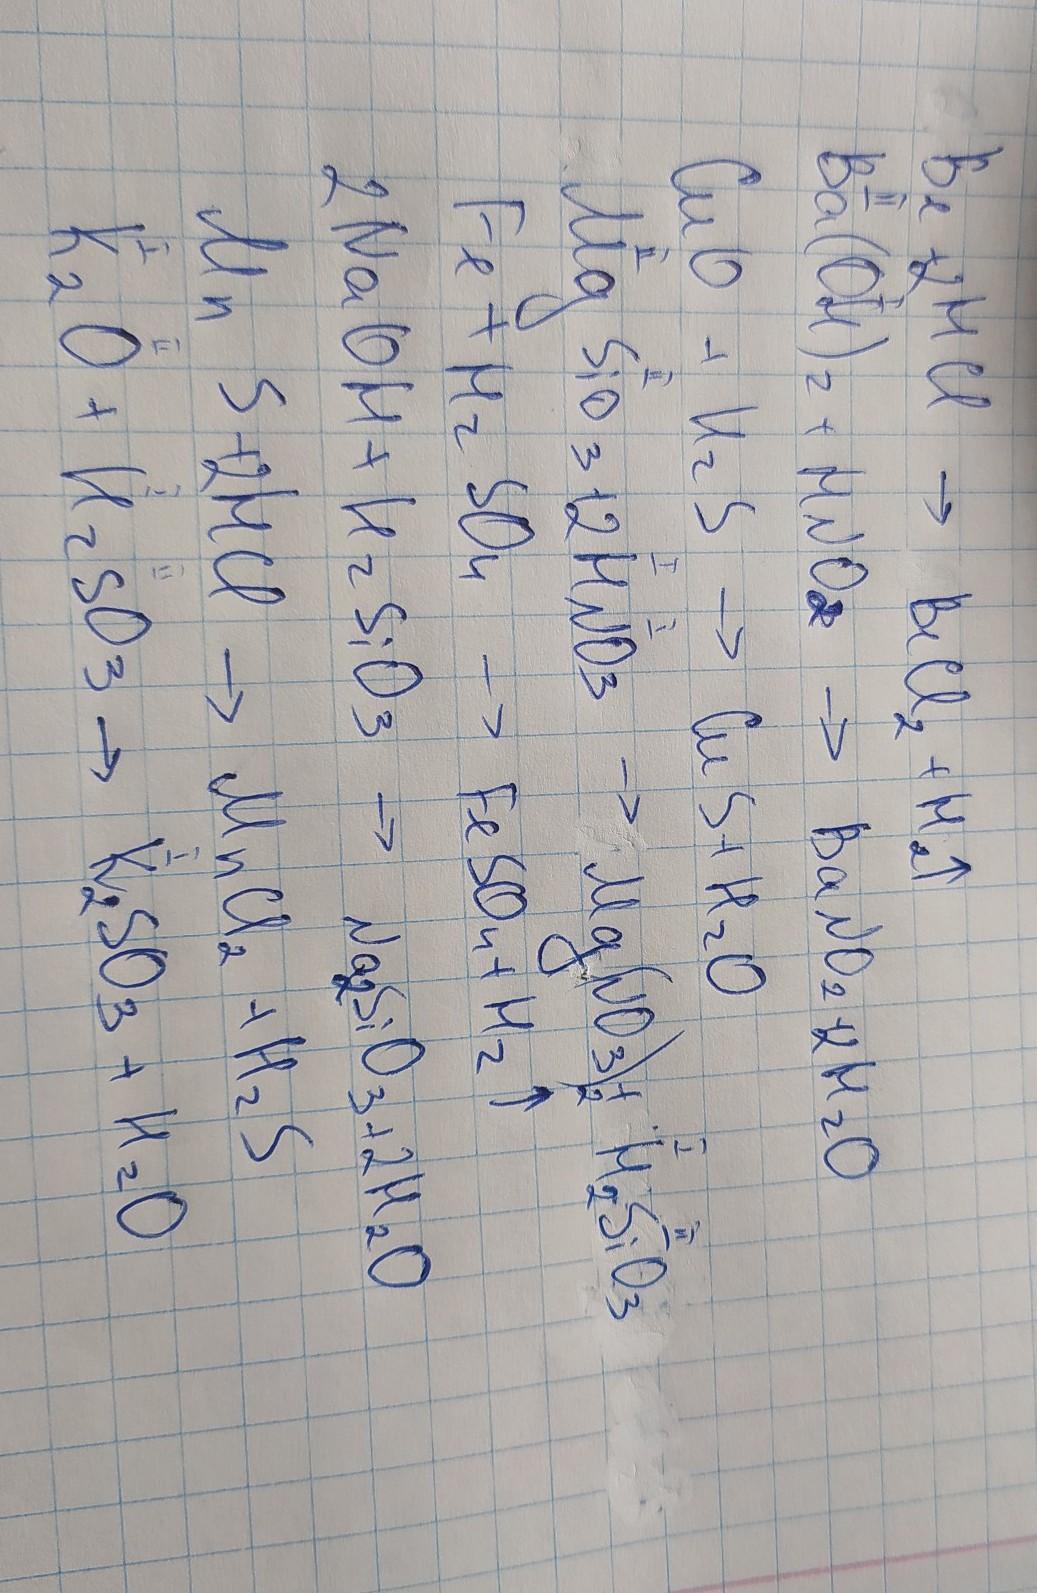 Be + 2HCl → BeCl2 + H2↑
Ba(OH)2 + HNO2 → BaNO2 + 2H2O
CuO + H2S → CuS + H2O
MgSiO3 + 2HNO3 → Mg(NO3)2 + H2SiO3
Fe + H2SO4 → FeSO4 + H2↑
2NaOH + H2SiO3 → Na2SiO3 + 2H2O
MnS + 2HCl → MnCl2 + H2S
K2O + H2SO3 → K2SO3 + H2O